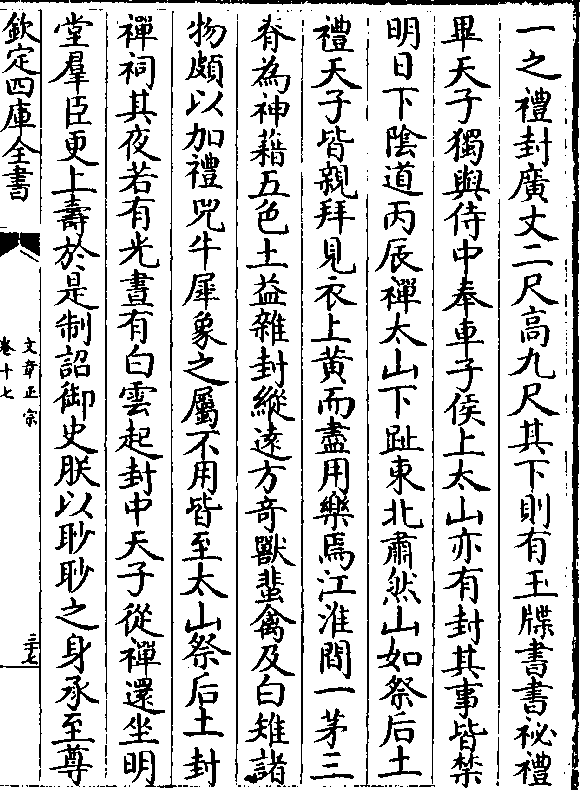 一之禮封廣丈二尺高九尺其下則有玉牒書書祕禮
畢天子獨與侍中奉車子侯上太山亦有封其事皆禁
明日下陰道丙辰禪太山下趾東北肅然山如祭后土
禮天子皆親拜見衣上黄而盡用樂焉江淮間一茅三
脊為神藉五色土益雜封縱逺方奇獸蜚禽及白雉諸
物頗以加禮兕牛犀象之屬不用皆至太山祭后土封
禪祠其夜若有光晝有白雲起封中天子從禪還坐明
堂羣臣更上壽於是制詔御史朕以眇眇之身承至尊
欽定四庫全書
文章正宗
卷十七
三十七